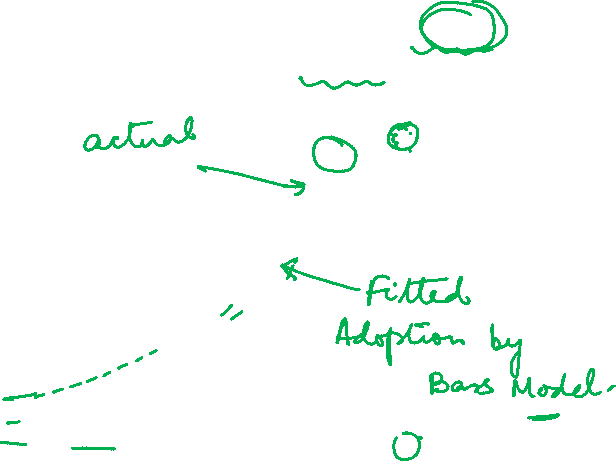 actual
Fitted
Adoption by
Bass Model.